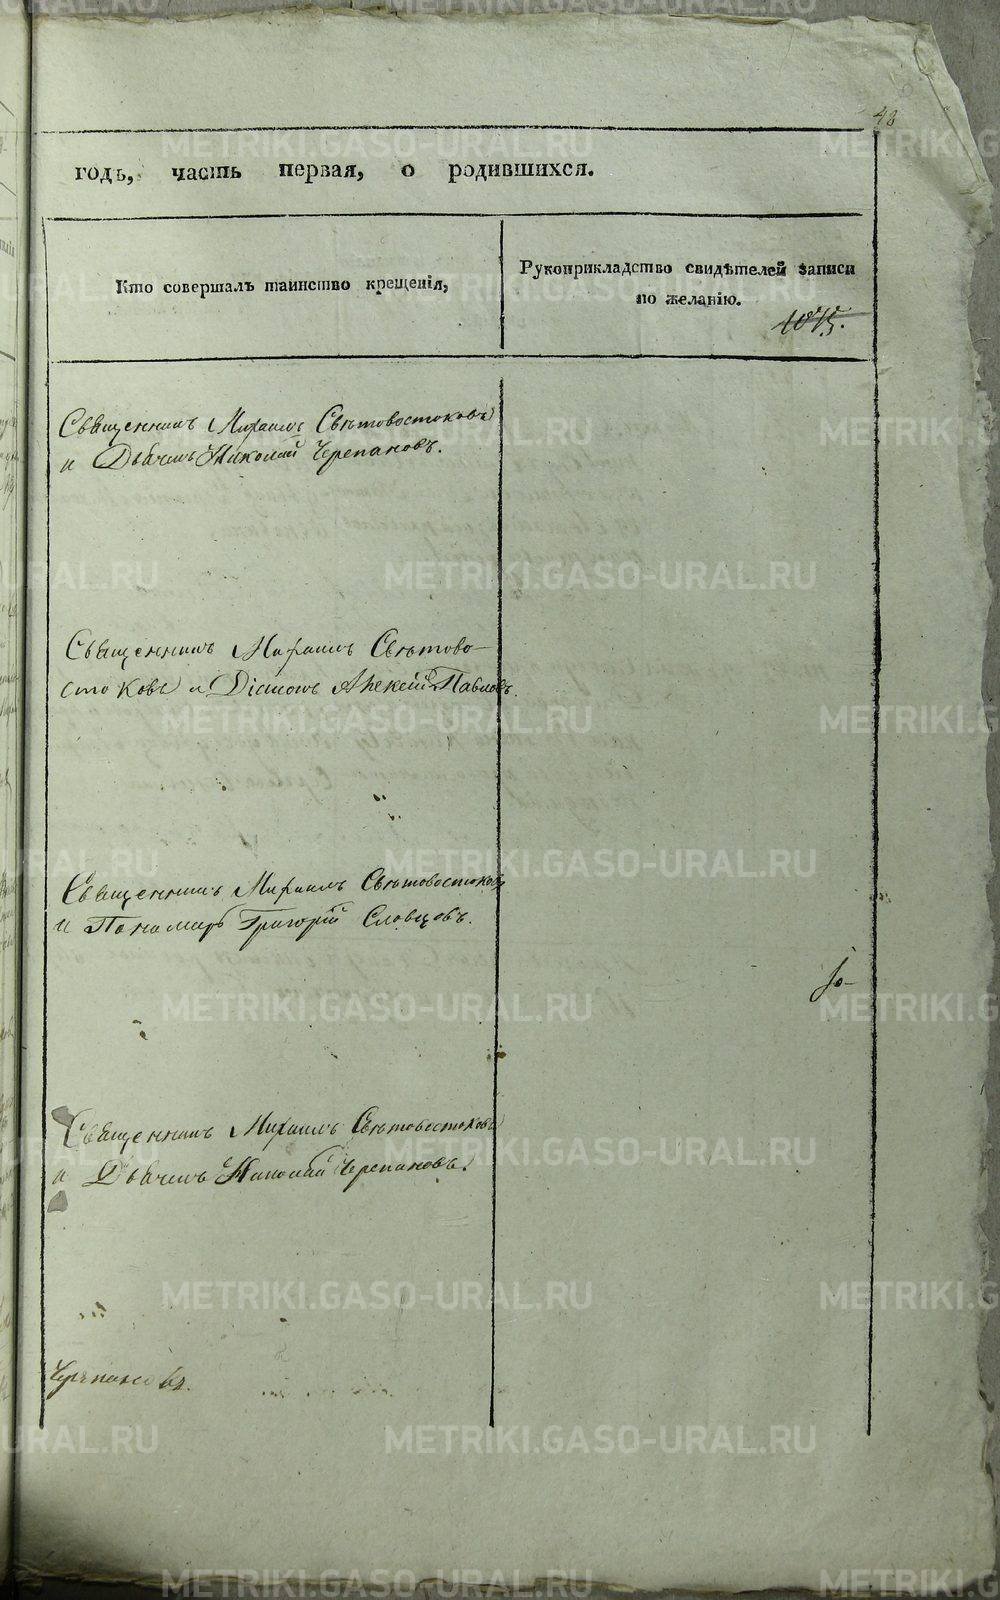 48
годъ, часть первая, о родившихся.
Кто совершалъ таинство крещенія,
Рукоприкладство свидѣтелей записи
по желанію.
1075.
Священникъ Михаилъ Свѣтовостоковъ
и Дьячекъ Николай Черепановъ.
Священникъ Михаилъ Свѣтово-
стоковъ и Діаконъ Алексей Павловъ.
Священникъ Михаилъ Свѣтовостоковъ
и Пономарь Григорій Словцовъ.
Священникъ Михаилъ Свѣтовостоковъ
и Дьячекъ Николай Черепановъ.
Черепановъ.
METRIKI.GASO-URAL.RU